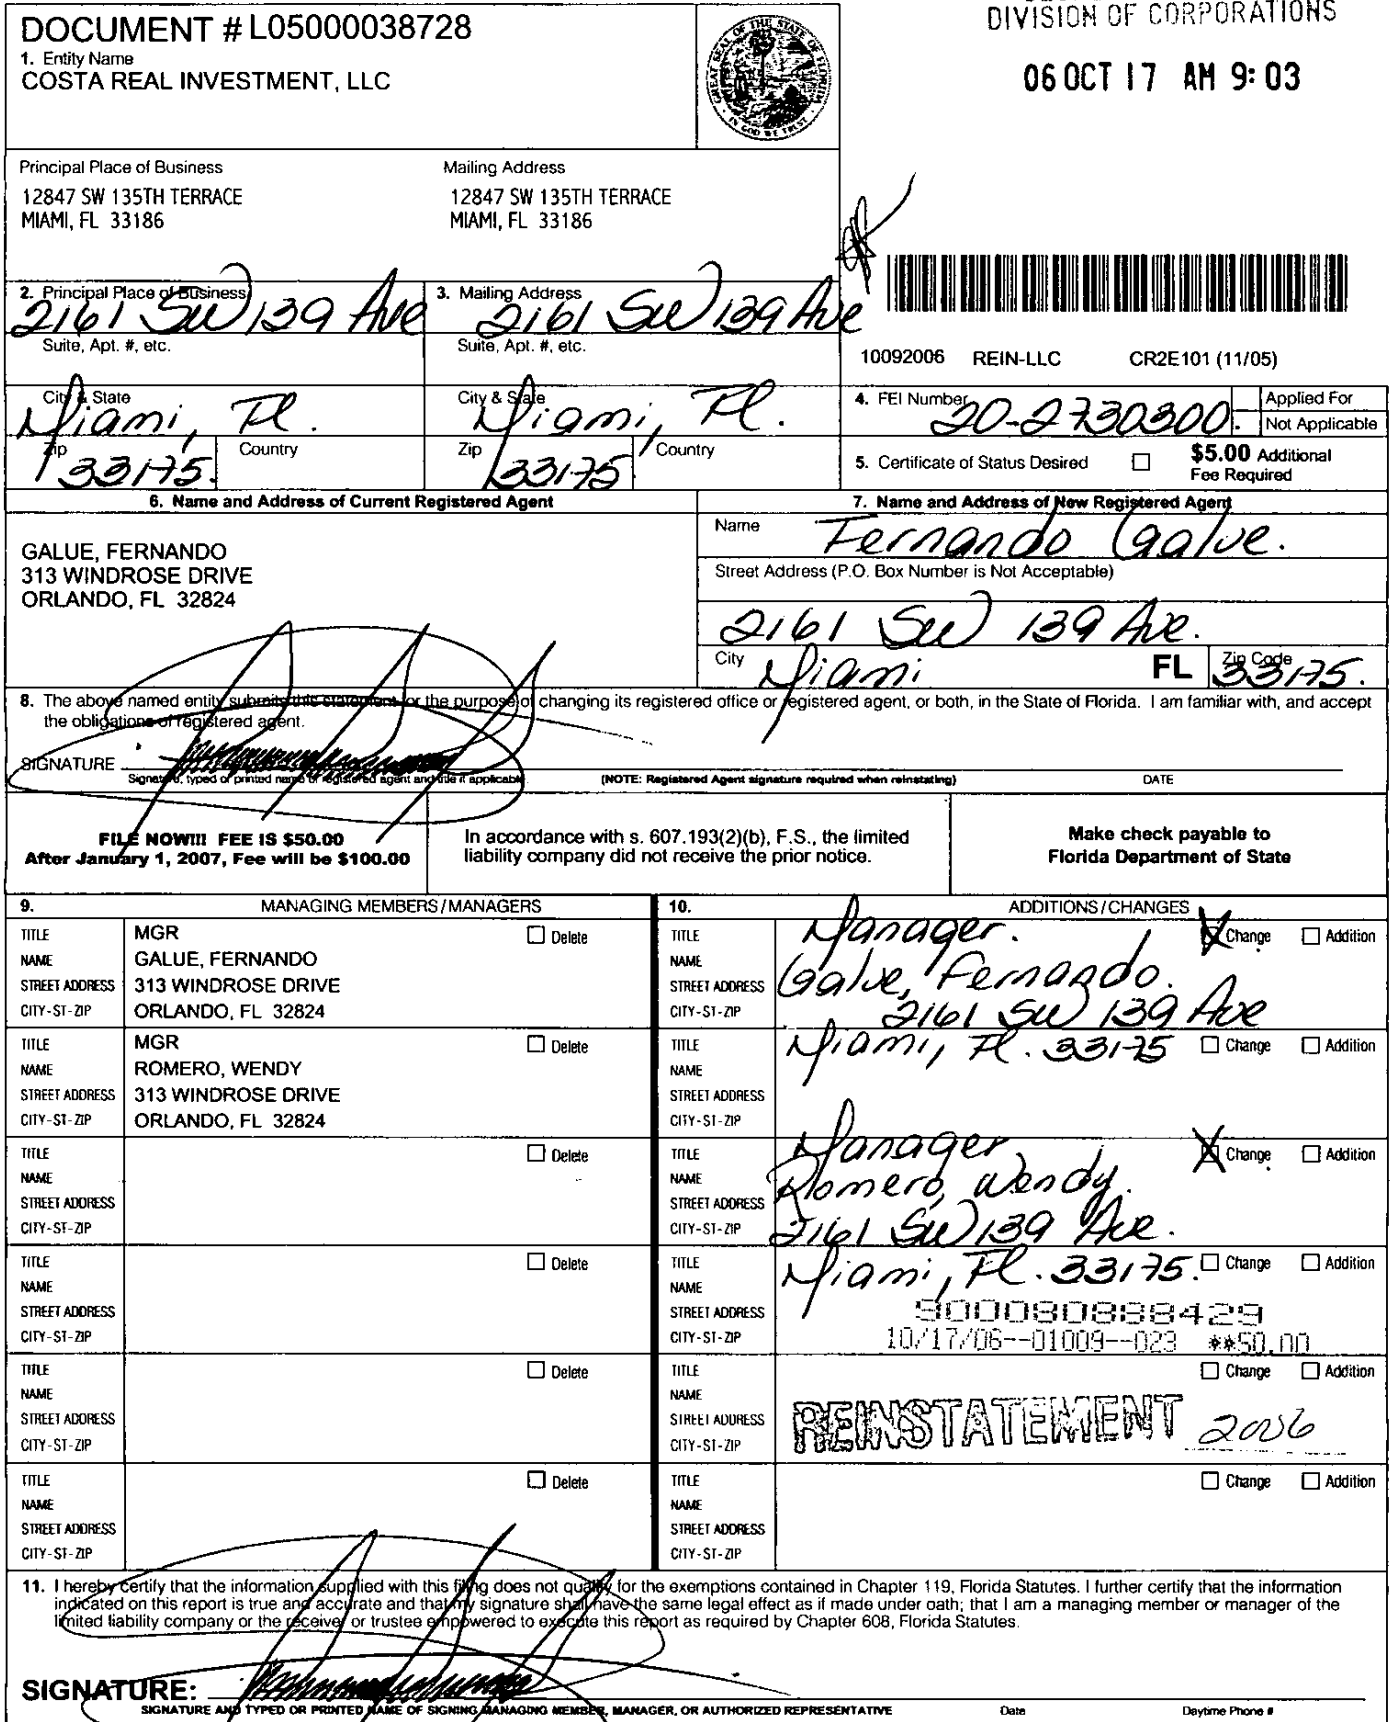 DIVISION OF CORPORATIONS
06 OCT 17 AM 9:03
DOCUMENT # L05000038728
1. Entity Name
COSTA REAL INVESTMENT, LLC
GREAT SEAL OF THE STATE OF FLORIDA
IN GOD WE TRUST
Principal Place of Business
12847 SW 135TH TERRACE
MIAMI, FL 33186
Mailing Address
12847 SW 135TH TERRACE
MIAMI, FL 33186
2. Principal Place of Business
2161 SW 139 Ave
Suite, Apt. #, etc.
City & State
Miami, Fl.
Zip
33175.
Country
3. Mailing Address
2161 SW 139 Ave
Suite, Apt. #, etc.
City & State
Miami, Fl.
Zip
33175
Country
10092006 REIN-LLC CR2E101 (11/05)
4. FEI Number
20-2730300.
Applied For
Not Applicable
5. Certificate of Status Desired
$5.00 Additional
Fee Required
6. Name and Address of Current Registered Agent
GALUE, FERNANDO
313 WINDROSE DRIVE
ORLANDO, FL 32824
7. Name and Address of New Registered Agent
Name
Fernando Galue.
Street Address (P.O. Box Number is Not Acceptable)
2161 SW 139 Ave.
City
Miami
FL
Zip Code
33175.
8. The above named entity submits this statement for the purpose of changing its registered office or registered agent, or both, in the State of Florida. I am familiar with, and accept
the obligations of registered agent.
SIGNATURE
Signature, typed or printed name of registered agent and title if applicable.
(NOTE: Registered Agent signature required when reinstating)
DATE
FILE NOW!!! FEE IS $50.00
After January 1, 2007, Fee will be $100.00
In accordance with s. 607.193(2)(b), F.S., the limited
liability company did not receive the prior notice.
Make check payable to
Florida Department of State
9. MANAGING MEMBERS/MANAGERS
TITLE MGR Delete
NAME GALUE, FERNANDO
STREET ADDRESS 313 WINDROSE DRIVE
CITY-ST-ZIP ORLANDO, FL 32824
TITLE MGR Delete
NAME ROMERO, WENDY
STREET ADDRESS 313 WINDROSE DRIVE
CITY-ST-ZIP ORLANDO, FL 32824
TITLE Delete
NAME
STREET ADDRESS
CITY-ST-ZIP
TITLE Delete
NAME
STREET ADDRESS
CITY-ST-ZIP
TITLE Delete
NAME
STREET ADDRESS
CITY-ST-ZIP
TITLE Delete
NAME
STREET ADDRESS
CITY-ST-ZIP
10. ADDITIONS/CHANGES
TITLE Manager. Change Addition
NAME Galue, Fernando.
STREET ADDRESS
CITY-ST-ZIP 2161 SW 139 Ave
TITLE Miami, Fl. 33175 Change Addition
NAME
STREET ADDRESS
CITY-ST-ZIP
TITLE Manager Change Addition
NAME Romero, Wendy.
STREET ADDRESS
CITY-ST-ZIP 2161 SW 139 Ave.
TITLE Miami, Fl. 33175. Change Addition
NAME
STREET ADDRESS 900080888429
CITY-ST-ZIP 10/17/06--01009--023 **50.00
TITLE Change Addition
NAME
STREET ADDRESS REINSTATEMENT 2006
CITY-ST-ZIP
TITLE Change Addition
NAME
STREET ADDRESS
CITY-ST-ZIP
11. I hereby certify that the information supplied with this filing does not qualify for the exemptions contained in Chapter 119, Florida Statutes. I further certify that the information
indicated on this report is true and accurate and that my signature shall have the same legal effect as if made under oath; that I am a managing member or manager of the
limited liability company or the receiver or trustee empowered to execute this report as required by Chapter 608, Florida Statutes.
SIGNATURE:
SIGNATURE AND TYPED OR PRINTED NAME OF SIGNING MANAGING MEMBER, MANAGER, OR AUTHORIZED REPRESENTATIVE
Date
Daytime Phone #